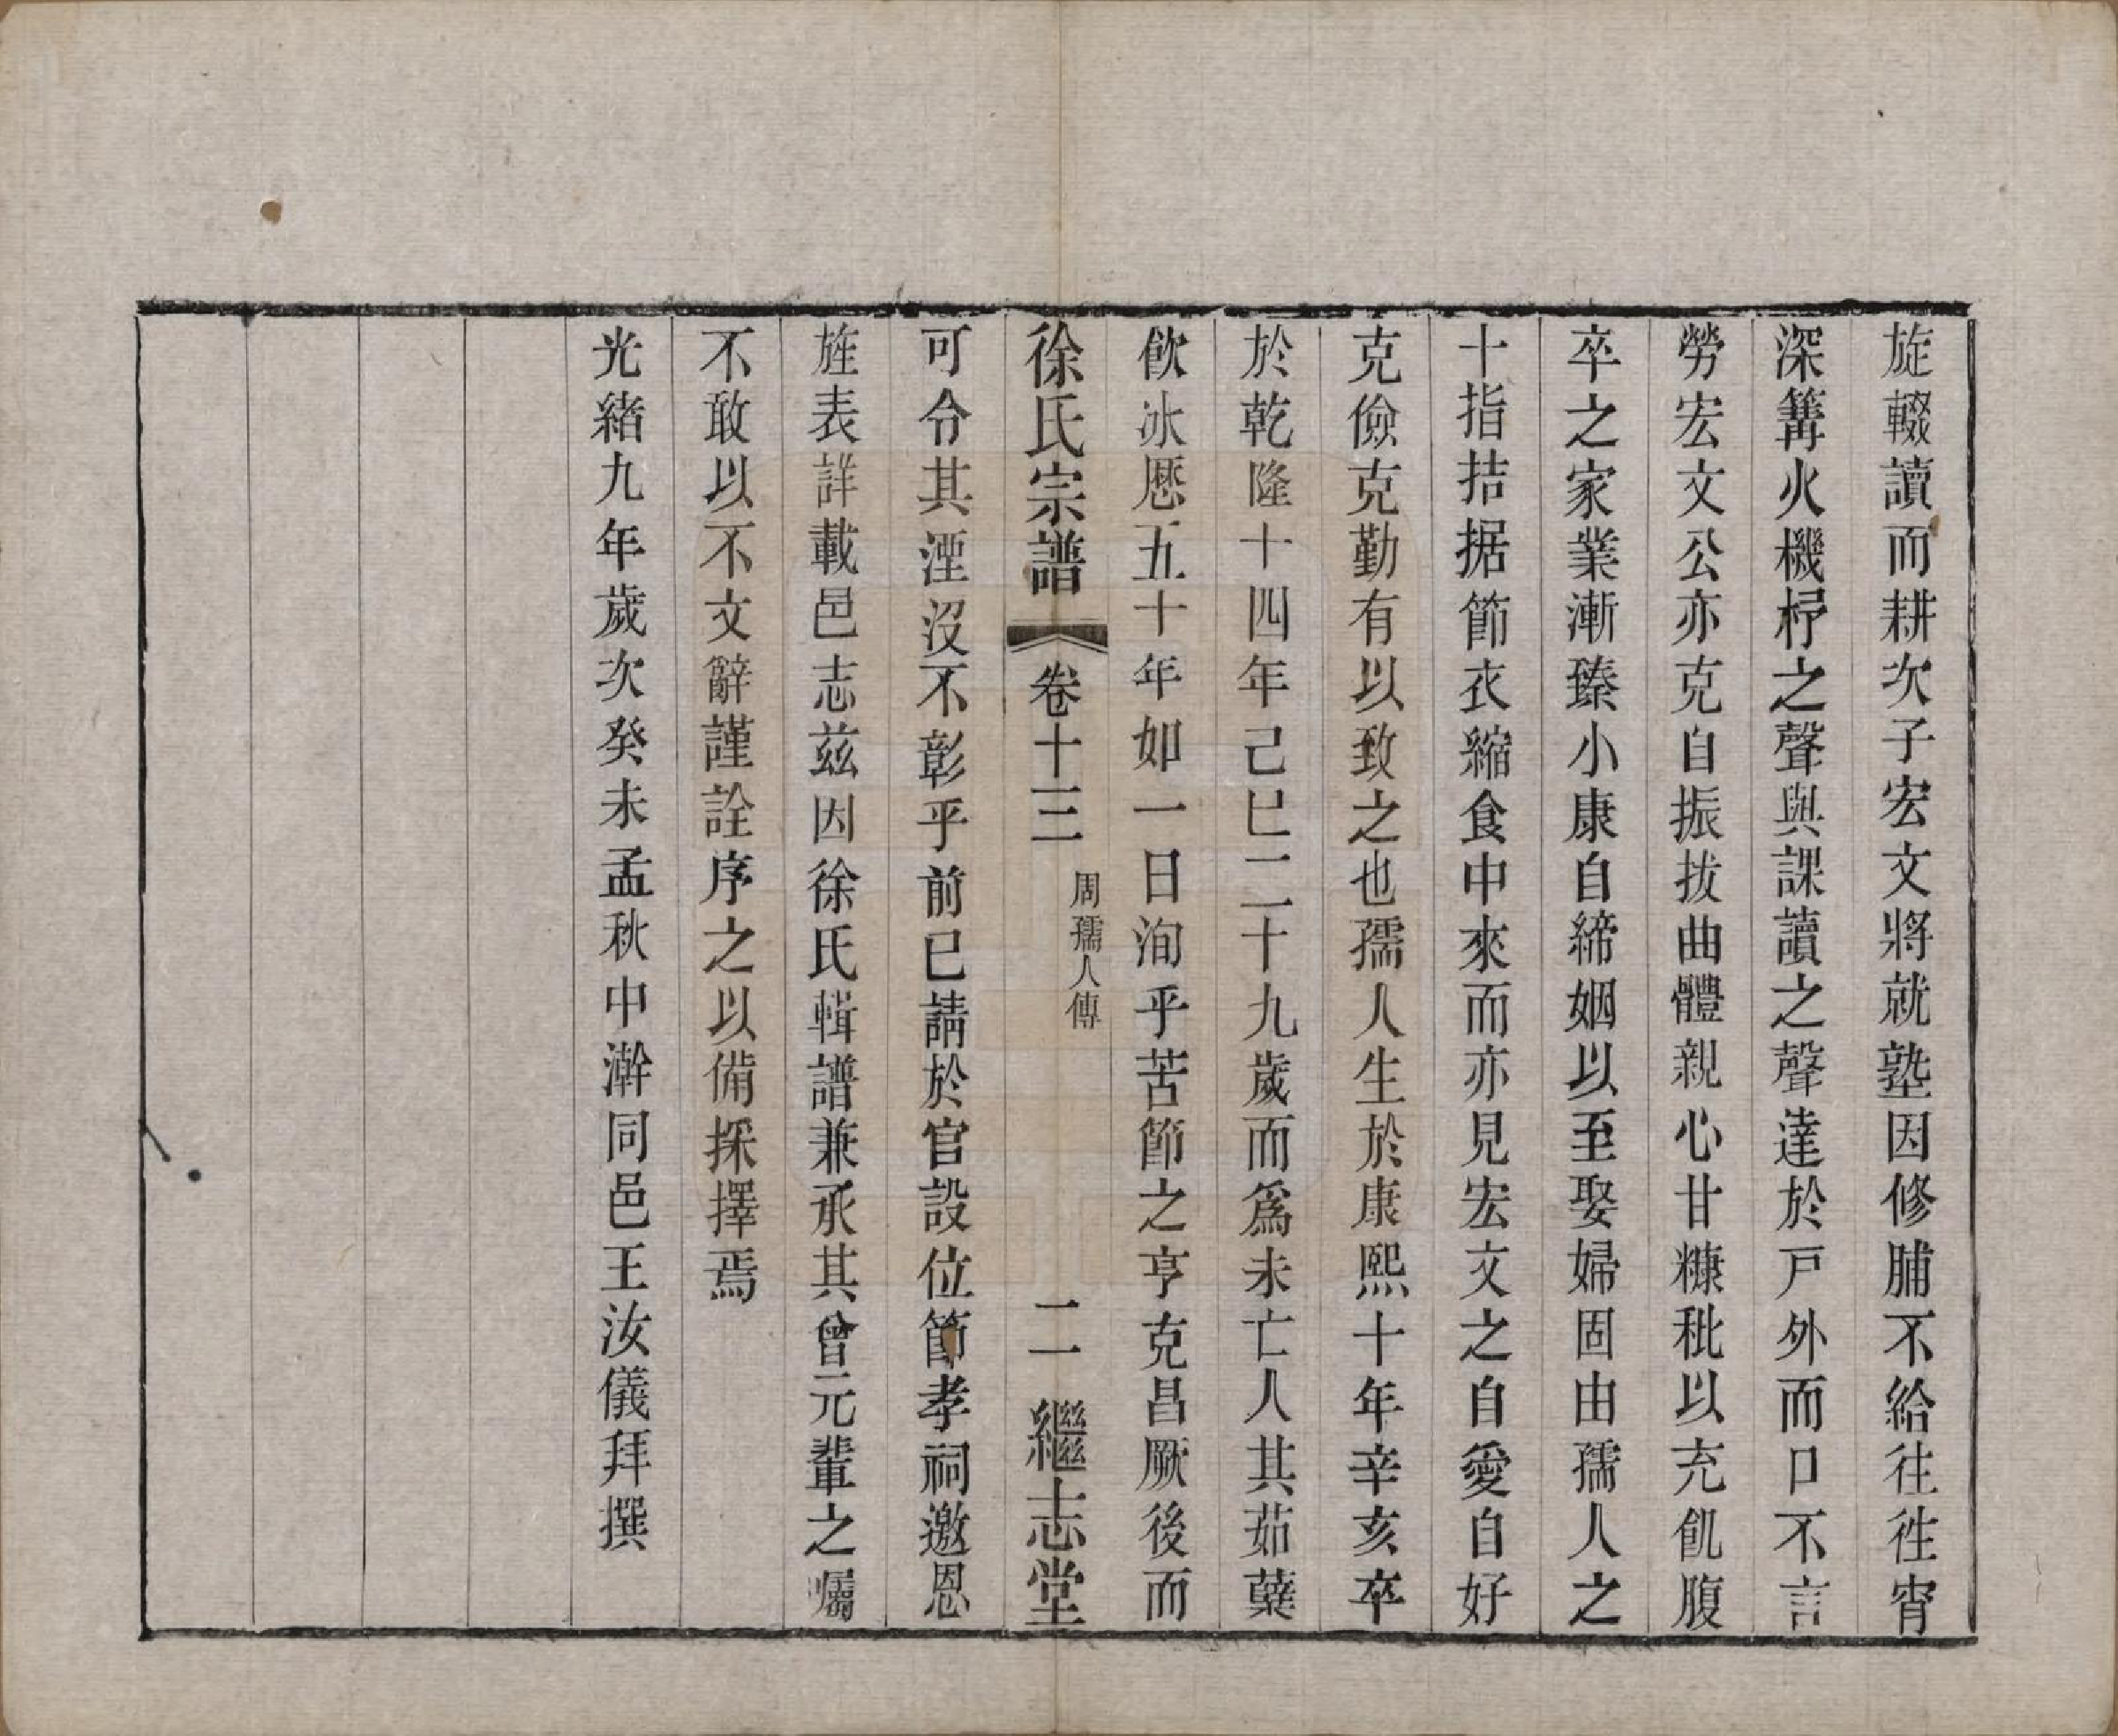 旋輟讀而耕次子宏文將就塾因修脯不給往徃宵
深篝火機杼之聲與課讀之聲達於戸外而口不言
勞宏文公亦克自振拔曲體親心甘糠秕以充飢腹
卒之家業漸臻小康自締姻以至娶婦固由孺人之
十指拮据節衣縮食中來而亦見宏文之自愛自好
克儉克勤有以致之也孺人生於康熙十年辛亥卒
於乾隆十四年己巳二十九歲而爲未亡人其茹蘗
飲冰歷五十年如一日洵乎苦節之亨克昌厥後而
徐氏宗譜 卷十三 周孺人傳 二 繼志堂
可令其湮沒不彰乎前已請於官設位節孝祠邀恩
旌表詳載邑志兹因徐氏輯譜兼承其曾元輩之囑
不敢以不文辭謹詮序之以備採擇焉
光緒九年歲次癸未孟秋中澣同邑王汝儀拜撰